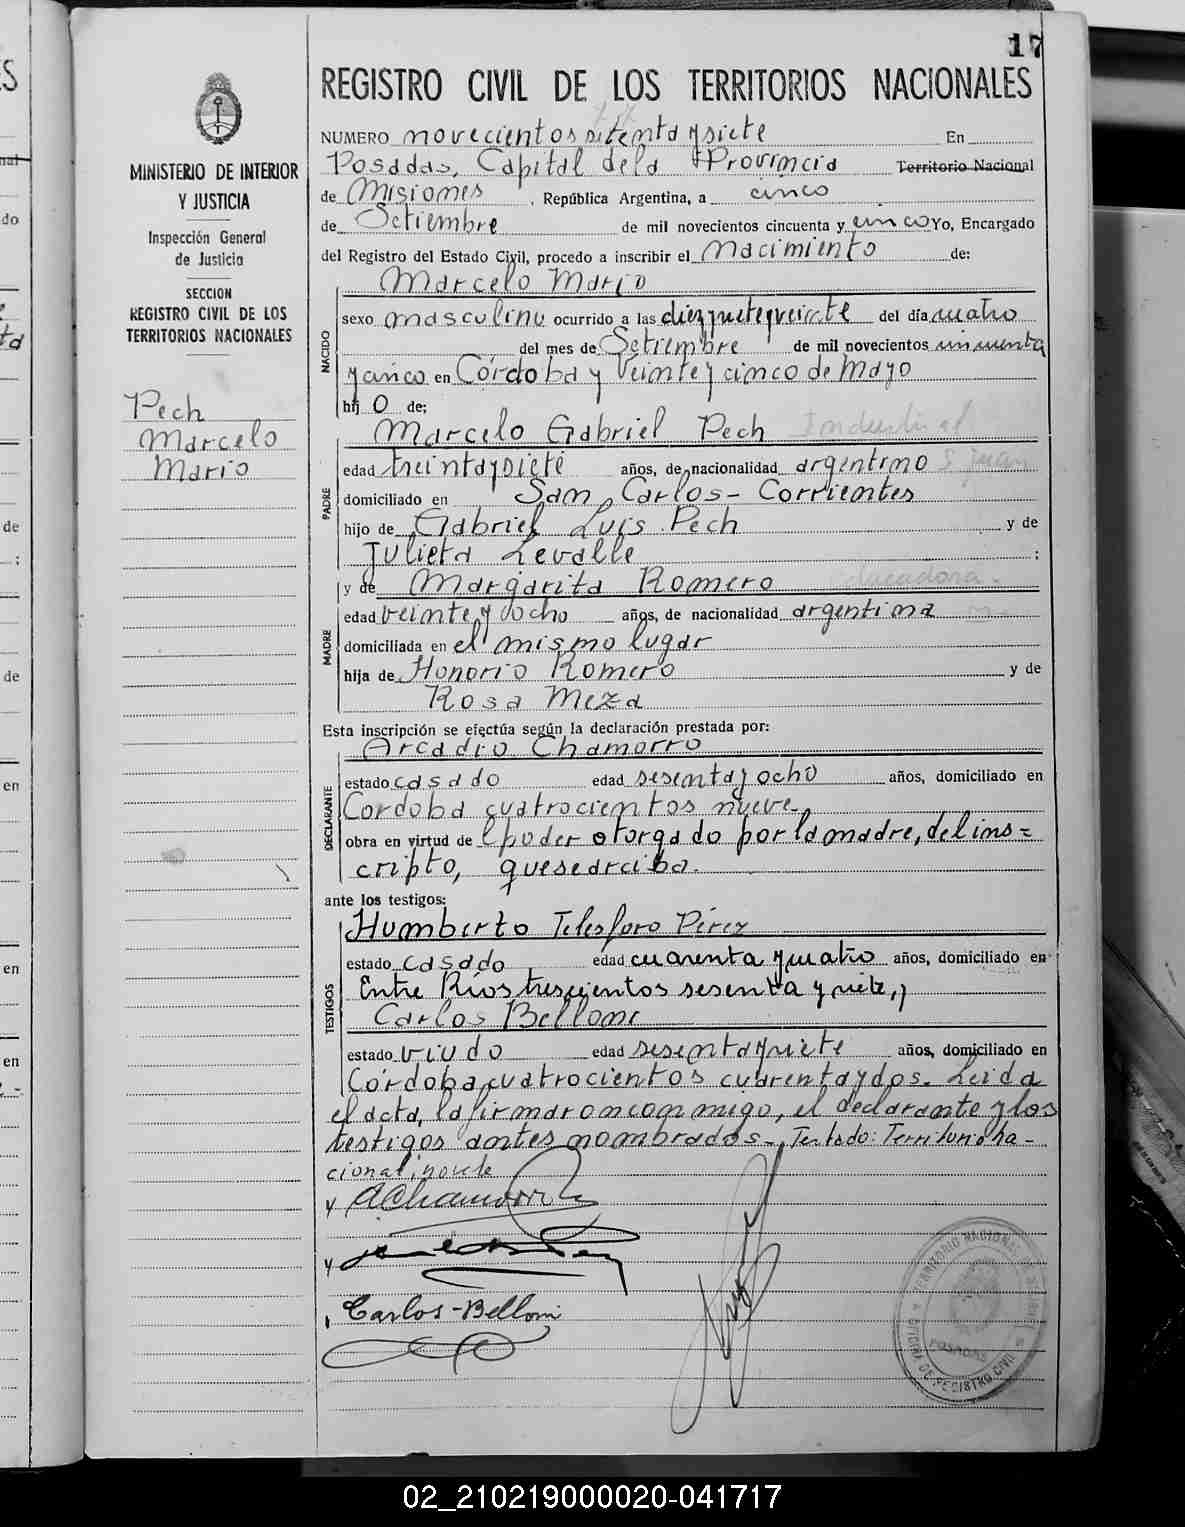 17
REGISTRO CIVIL DE LOS TERRITORIOS NACIONALES
MINISTERIO DE INTERIOR
Y JUSTICIA
Inspección General
de Justicia
SECCION
REGISTRO CIVIL DE LOS
TERRITORIOS NACIONALES
Pech
Marcelo
Mario
NUMERO novecientos setenta y siete En
Posadas, Capital de la Provincia Territorio Nacional
de Misiones, República Argentina, a cinco
de Setiembre de mil novecientos cincuenta y cinco Yo, Encargado
del Registro del Estado Civil, procedo a inscribir el nacimiento de:
Marcelo Mario
NACIDO
sexo masculino ocurrido a las diez y siete y veinte del día cuatro
del mes de Setiembre de mil novecientos cincuenta
y cinco en Córdoba y Veinte y cinco de Mayo
hij o de;
Marcelo Gabriel Pech Industrial
PADRE
edad treinta y siete años, de nacionalidad argentino S. Juan
domiciliado en San Carlos - Corrientes
hijo de Gabriel Luis Pech y de
Julieta Levalle :
y de Margarita Romero educadora.
MADRE
edad veinte y ocho años, de nacionalidad argentina
domiciliada en el mismo lugar
hija de Honorio Romero y de
Rosa Meza
Esta inscripción se efectúa según la declaración prestada por:
Arcadio Chamorro
DECLARANTE
estado casado edad sesenta y ocho años, domiciliado en
Córdoba cuatrocientos nueve
obra en virtud de l poder otorgado por la madre, del ins=
cripto, que se archiba.
ante los testigos:
Humberto Telesforo Pérez
TESTIGOS
estado casado edad cuarenta y cuatro años, domiciliado en
Entre Ríos trescientos sesenta y siete, y
Carlos Belloni
estado viudo edad sesenta y siete años, domiciliado en
Córdoba cuatrocientos cuarenta y dos. Leida
el acta, la firmaron conmigo, el declarante y los
testigos antes nombrados. Testado: Territorio na-
cional, no vale
AChamorro
Carlos Belloni
TERRITORIO NACIONAL DE MISIONES
POSADAS
OFICINA DE REGISTRO CIVIL
02_210219000020-041717